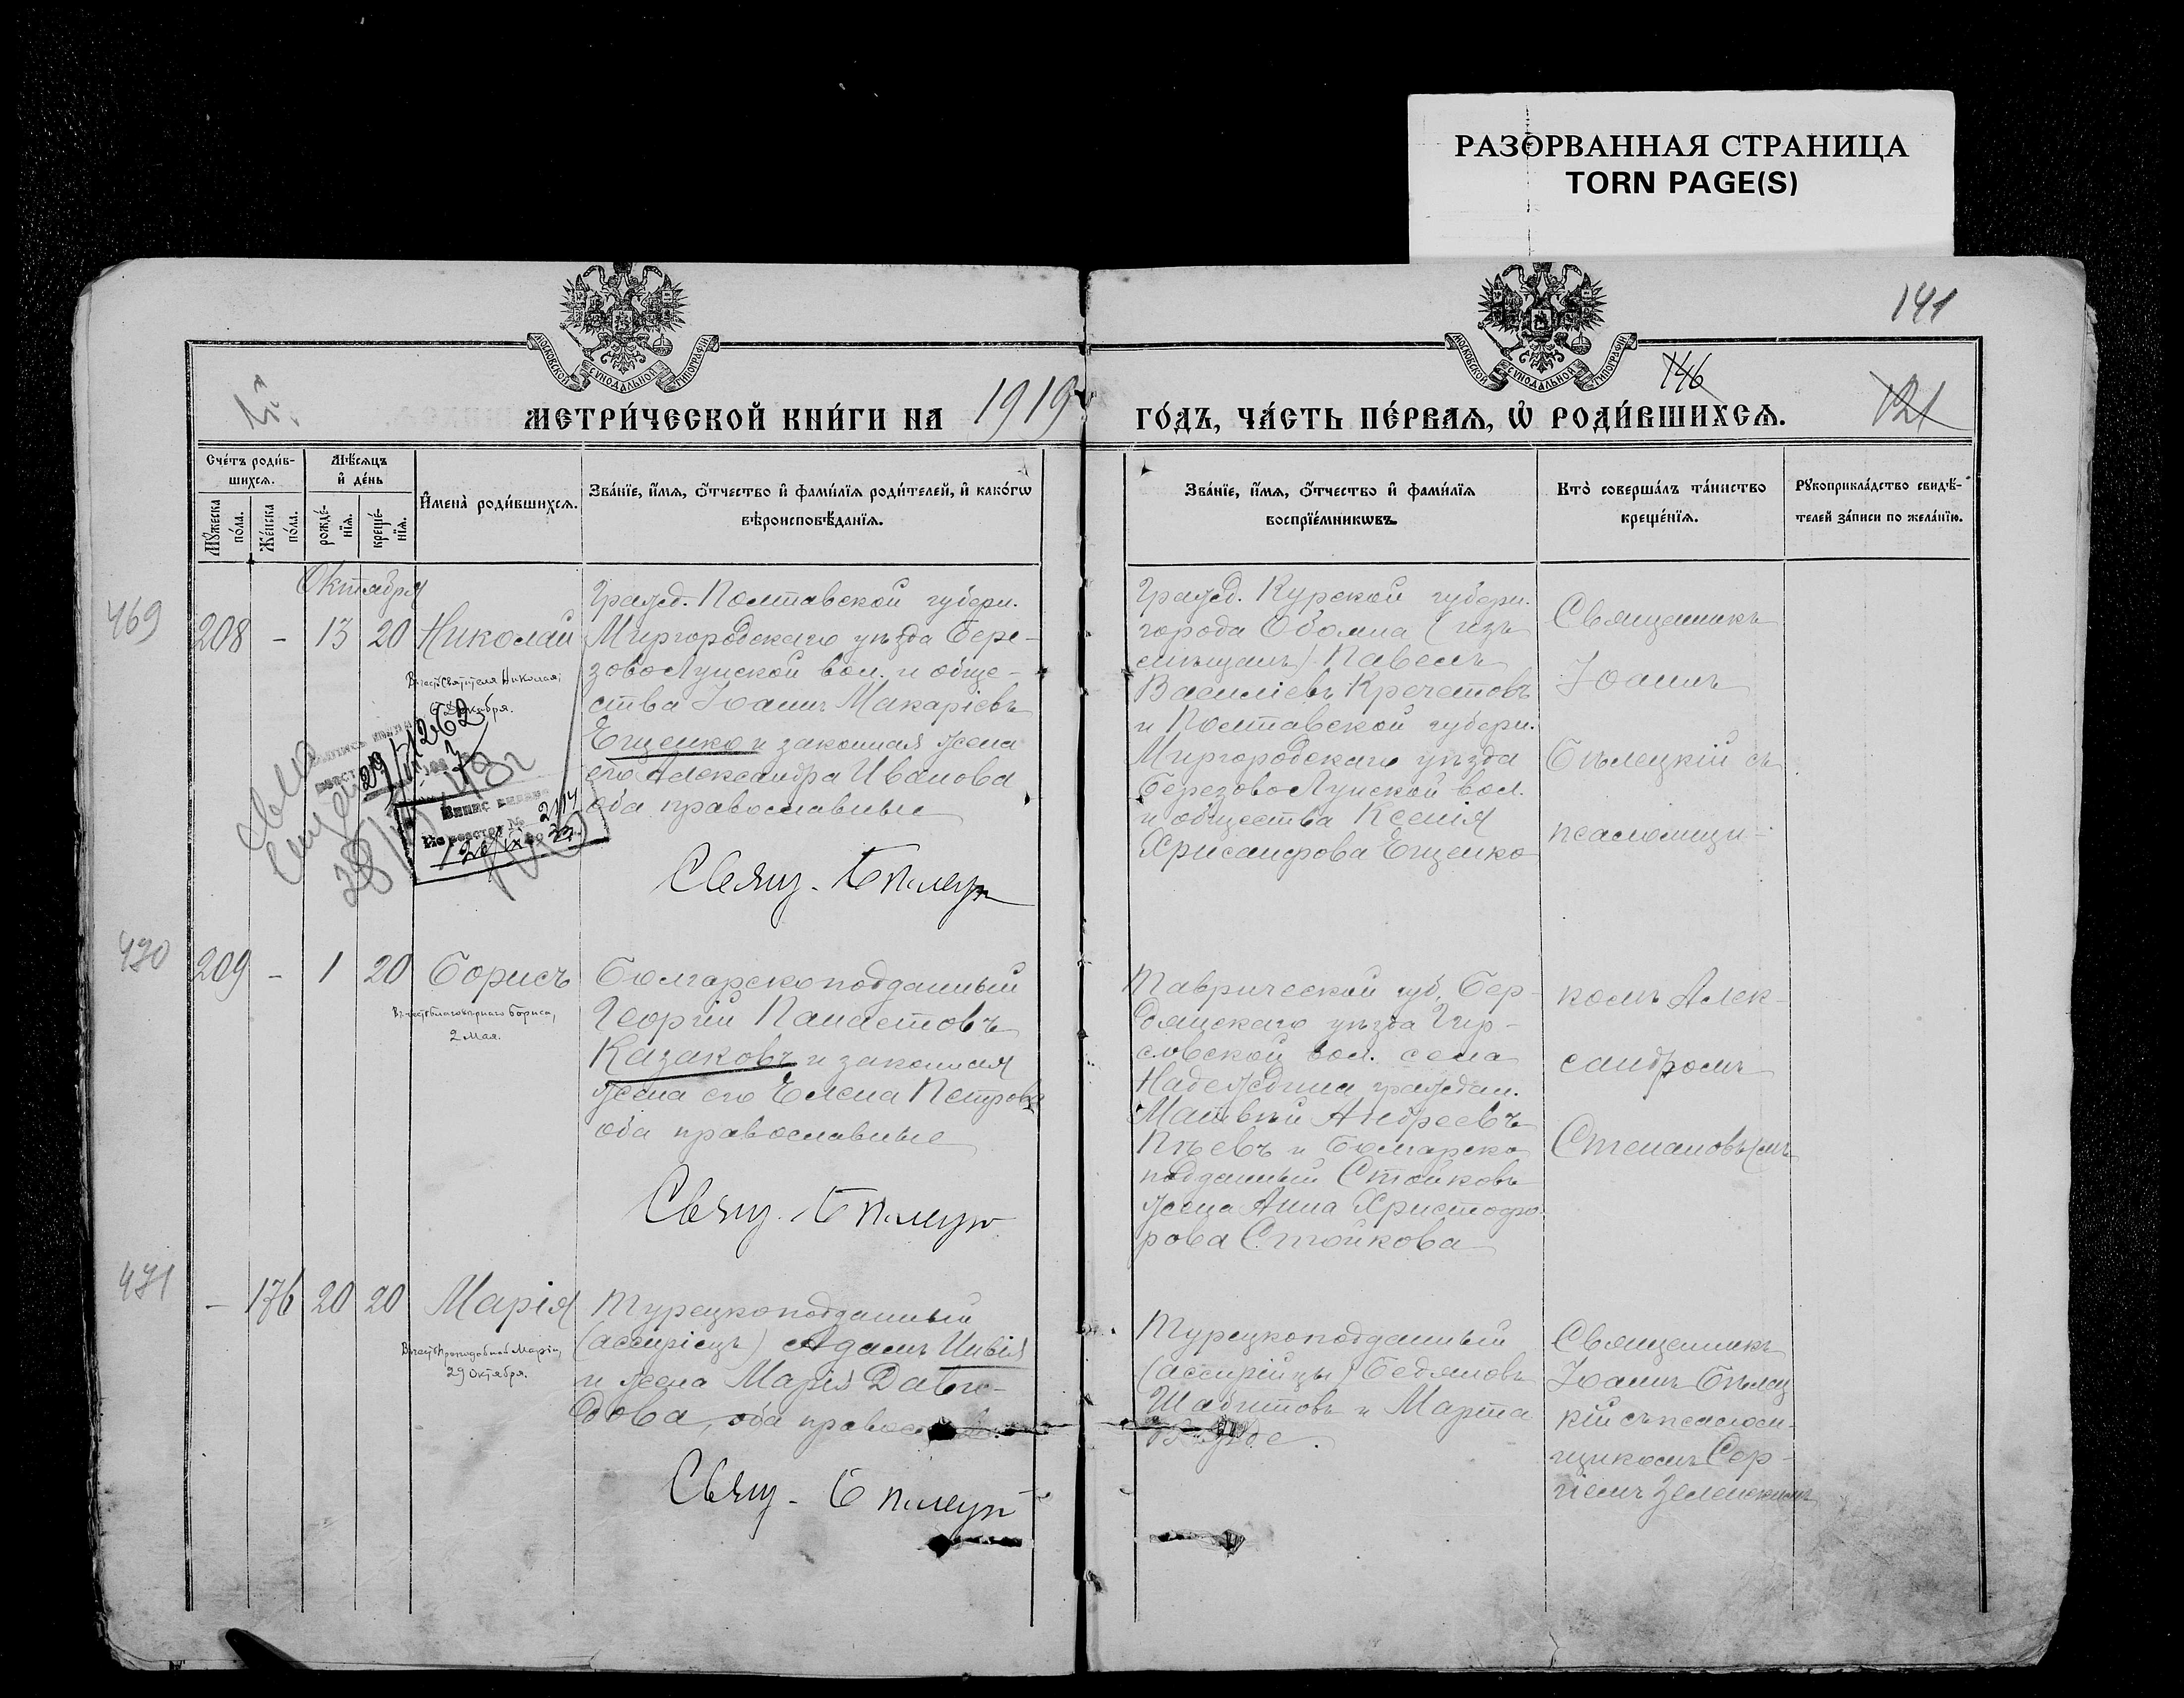 РАЗОРВАННАЯ СТРАНИЦА
TORN PAGE(S)
141
146
121
МОСКОВСКОЙ СѴНОДАЛЬНОЙ ТИПОГРАФІИ
МОСКОВСКОЙ СѴНОДАЛЬНОЙ ТИПОГРАФІИ
МЕТРИ́ЧЕСКОЙ КНИ́ГИ НА 1919
ГО́ДЪ, ЧА́СТЬ ПЕ́РВАѦ, Ѡ҆ РОДИ́ВШИХСѦ.
Сче́тъ роди́в-
шихсѧ.
Мꙋ́жеска по́ла.
Же́нска по́ла.
Мѣ́сѧцъ
и҆ де́нь
рожде́-
нїѧ.
креще́-
нїѧ.
И҆мена̀ роди́вшихсѧ.
Зва́нїе, и҆́мѧ, ѻ҆́тчество и҆ фами́лїѧ роди́телей, и҆ како́гѡ
вѣроисповѣ́данїѧ.
Зва́нїе, и҆́мѧ, ѻ҆́тчество и҆ фами́лїѧ
воспрїе́мникѡвъ.
Кто̀ соверша́лъ та́инство
креще́нїѧ.
Рꙋкоприкла́дство свидѣ́-
телей за́писи по жела́нїю.
Октября
469
208 - 13 20 Николай
Въ честь Святителя Николая,
6 Декабря.
Гражд. Полтавской губерн.
Миргородскаго уѣзда Бере-
зоволуцкой вол. и обще-
ства Іоаннъ Макаріевъ
Ещенко и законная жена
его Александра Иванова
оба православные
Свящ. Бѣлецк
Гражд. Курской губерн.
города Обояна (изъ
мѣщанъ) Павелъ
Василіевъ Кречетовъ
и Полтавской губерн.
Миргородскаго уѣзда
Березоволуцкой вол.
и общества Ксенія
Хрисанфова Ещенко
Священникъ
Іоаннъ
Бѣлецкій съ
псаломщи-
470
209 - 1 20 Борисъ
Въ честь благовѣрнаго Бориса,
2 Мая.
Болгарскоподданный
Георгій Панаетовъ
Казаковъ и законная
жена его Елена Петрова
оба православные
Свящ. Бѣлецк
Таврической губ. Бер-
дянскаго уѣзда
словской вол. села
Надеждина граждан.
Матвѣй Андреевъ
и Болгарско
подданный Стойковъ
жена Анна Христофо-
рова Стойкова
комъ Алек-
сандромъ
Степановымъ
471
- 176 20 20 Марія
Въ честь Преподобной Маріи,
29 Октября.
Турецкоподданный
(ассиріецъ) Адамъ Ивія
и жена Марія Дави-
дова, оба правос
Свящ. Бѣлецк
Турецкоподданный
(ассирійцы) Бедяновъ
Шабитовъ и Марта
Священникъ
Іоаннъ Бѣлец
кій съ псалом-
щикомъ Сер-
гіемъ Зеленскимъ